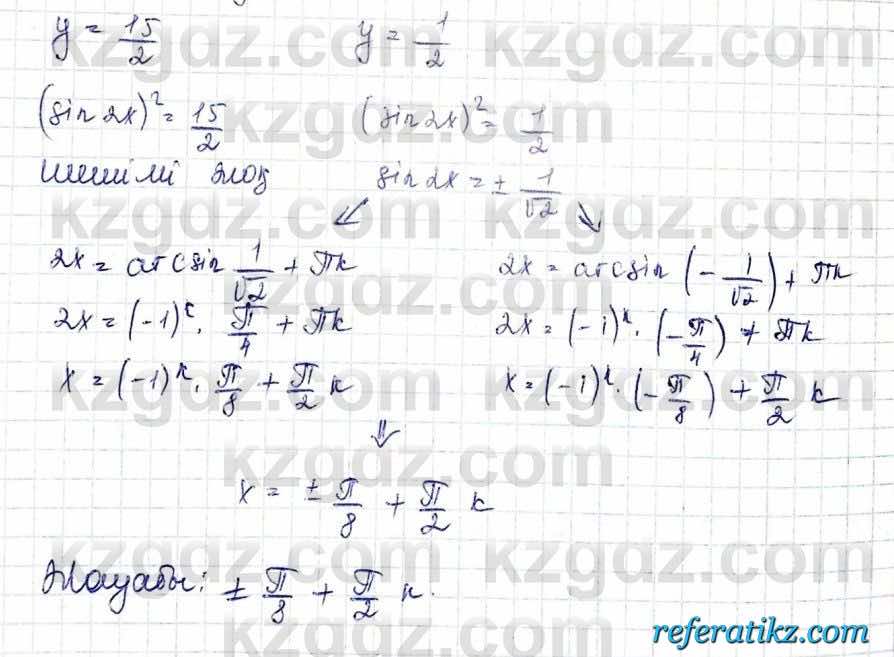 y = 15/2    y = 1/2
(sin 2x)² = 15/2    (sin 2x)² = 1/2
шешімі жоқ    sin 2x = ± 1/√2
⇙    ⇘
2x = arcsin 1/√2 + πk    2x = arcsin (- 1/√2) + πk
2x = (-1)ᵏ · π/4 + πk    2x = (-1)ᵏ · (- π/4) + πk
x = (-1)ᵏ · π/8 + π/2 k    x = (-1)ᵏ · (- π/8) + π/2 k
⇓
x = ± π/8 + π/2 k
Жауабы: ± π/8 + π/2 k.
kzgdz.com
referatikz.com